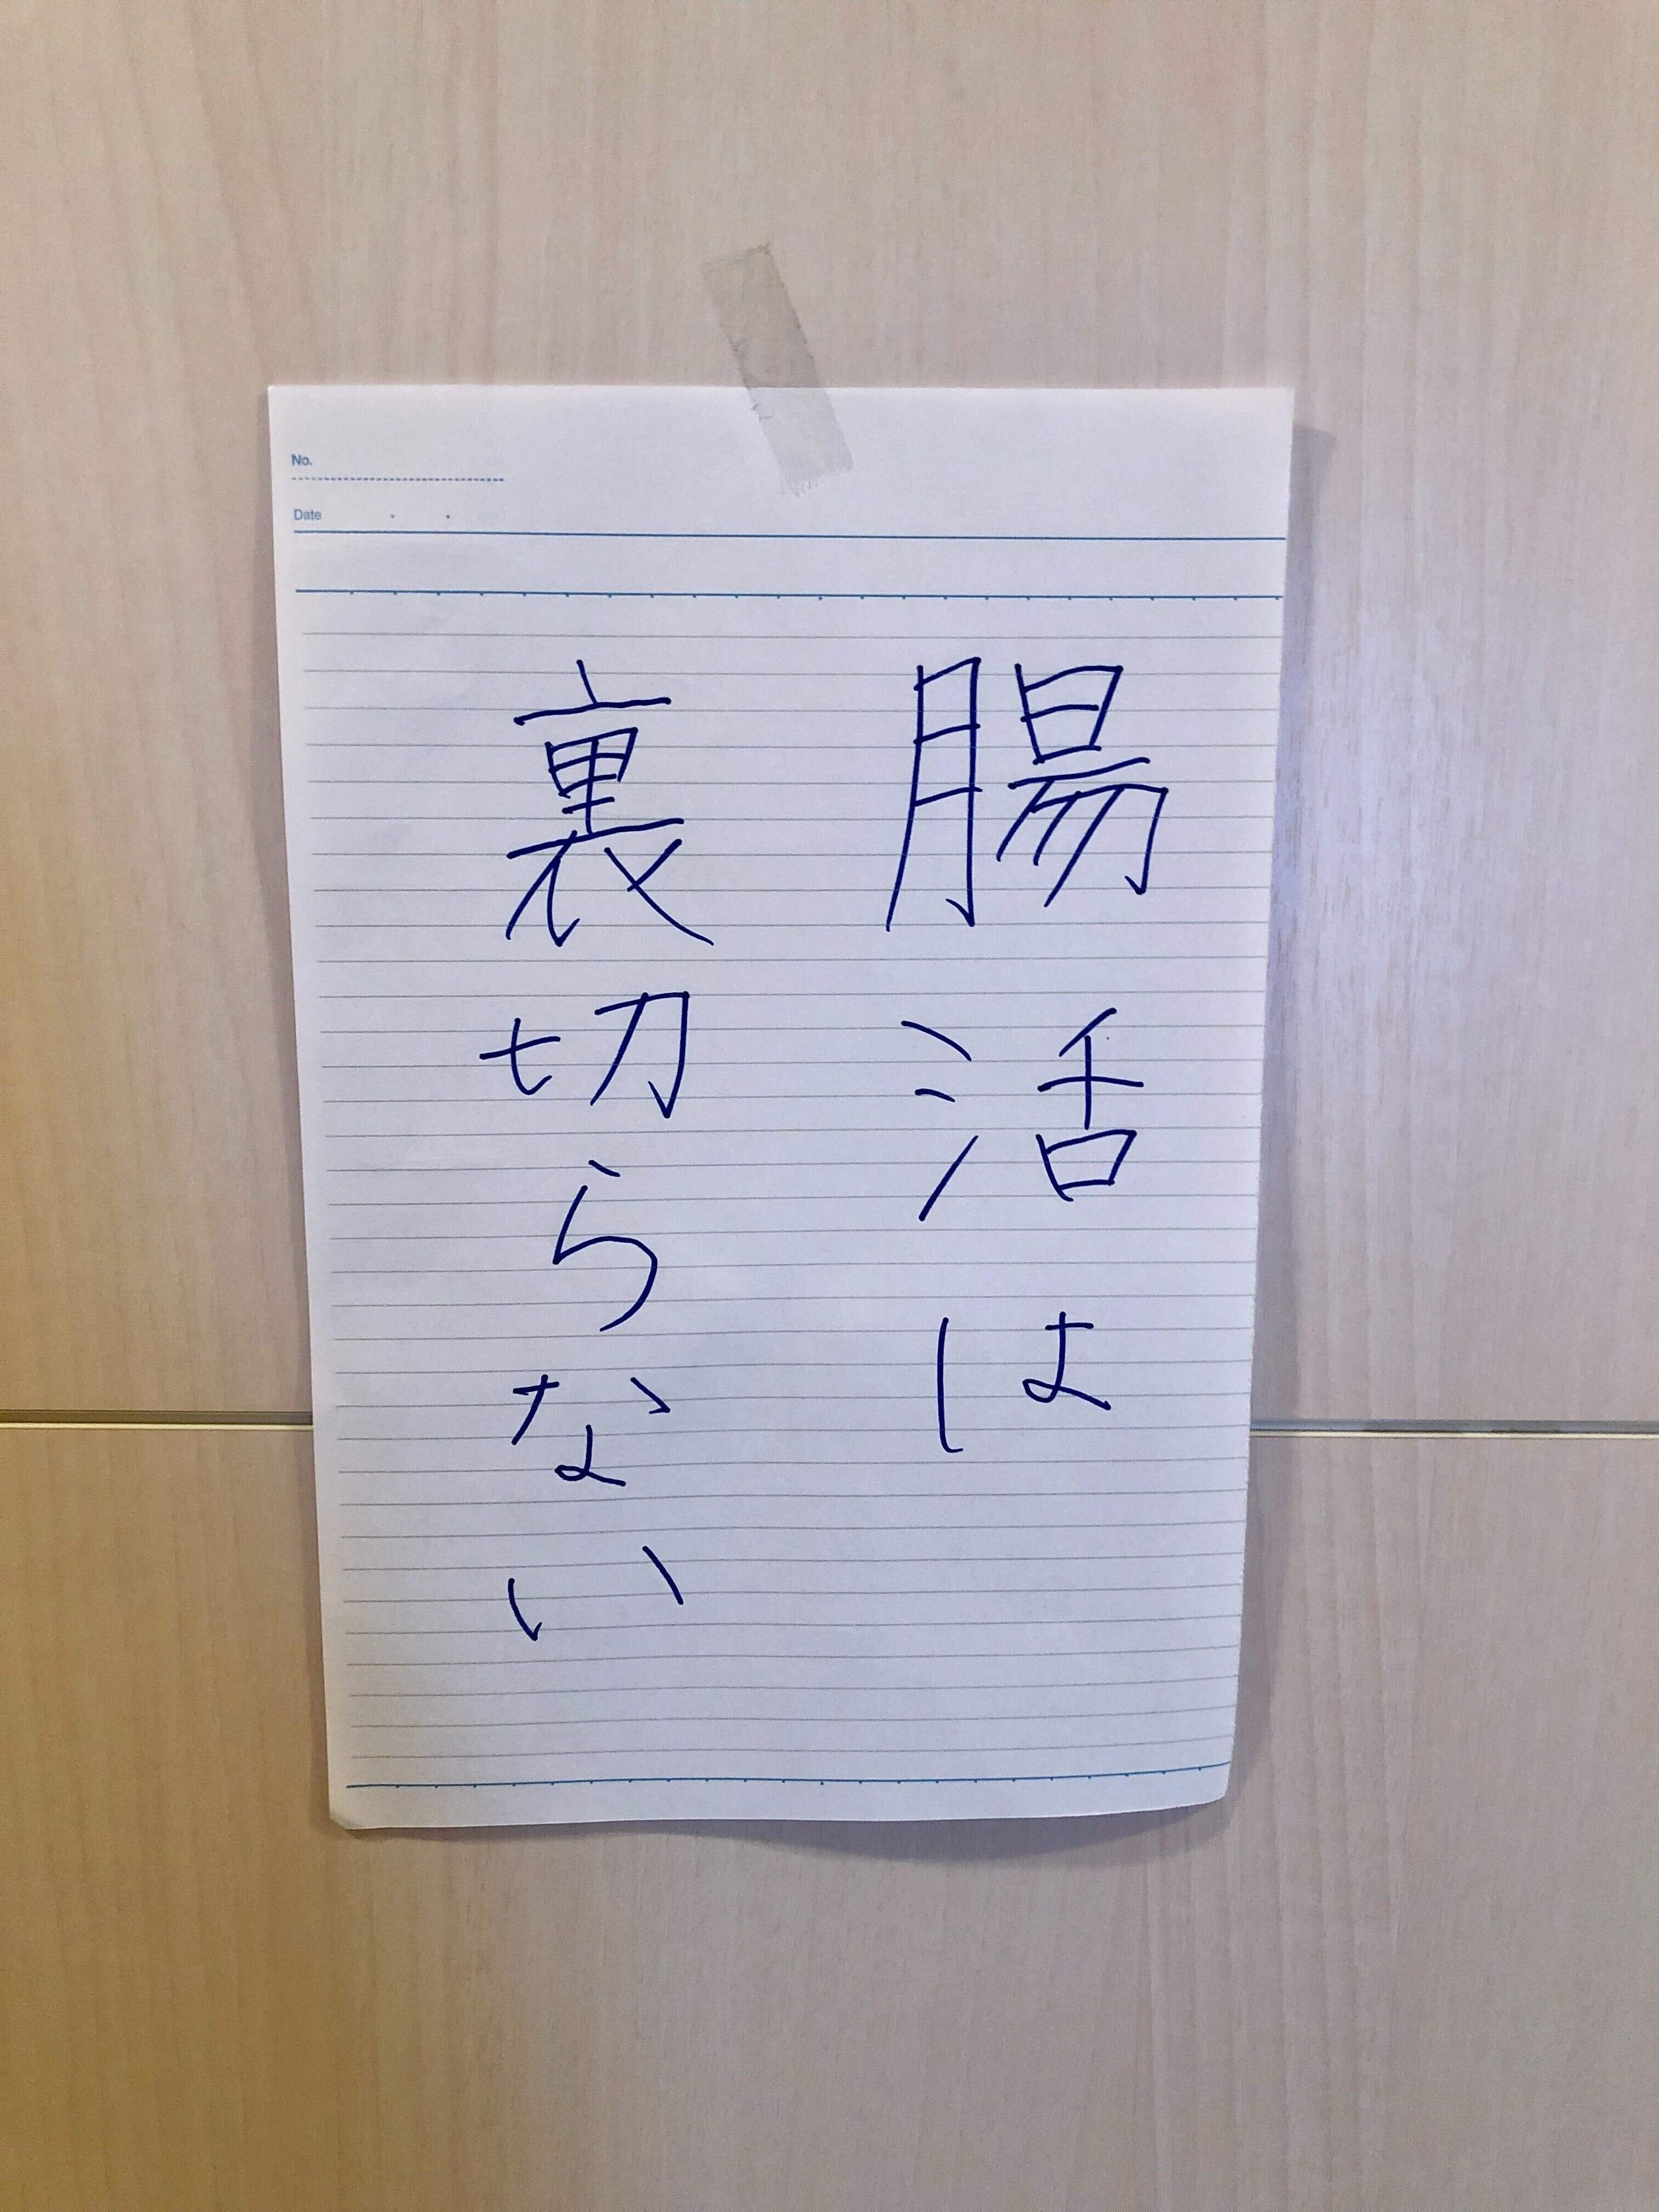 No.
Date
腸活は
裏切らない